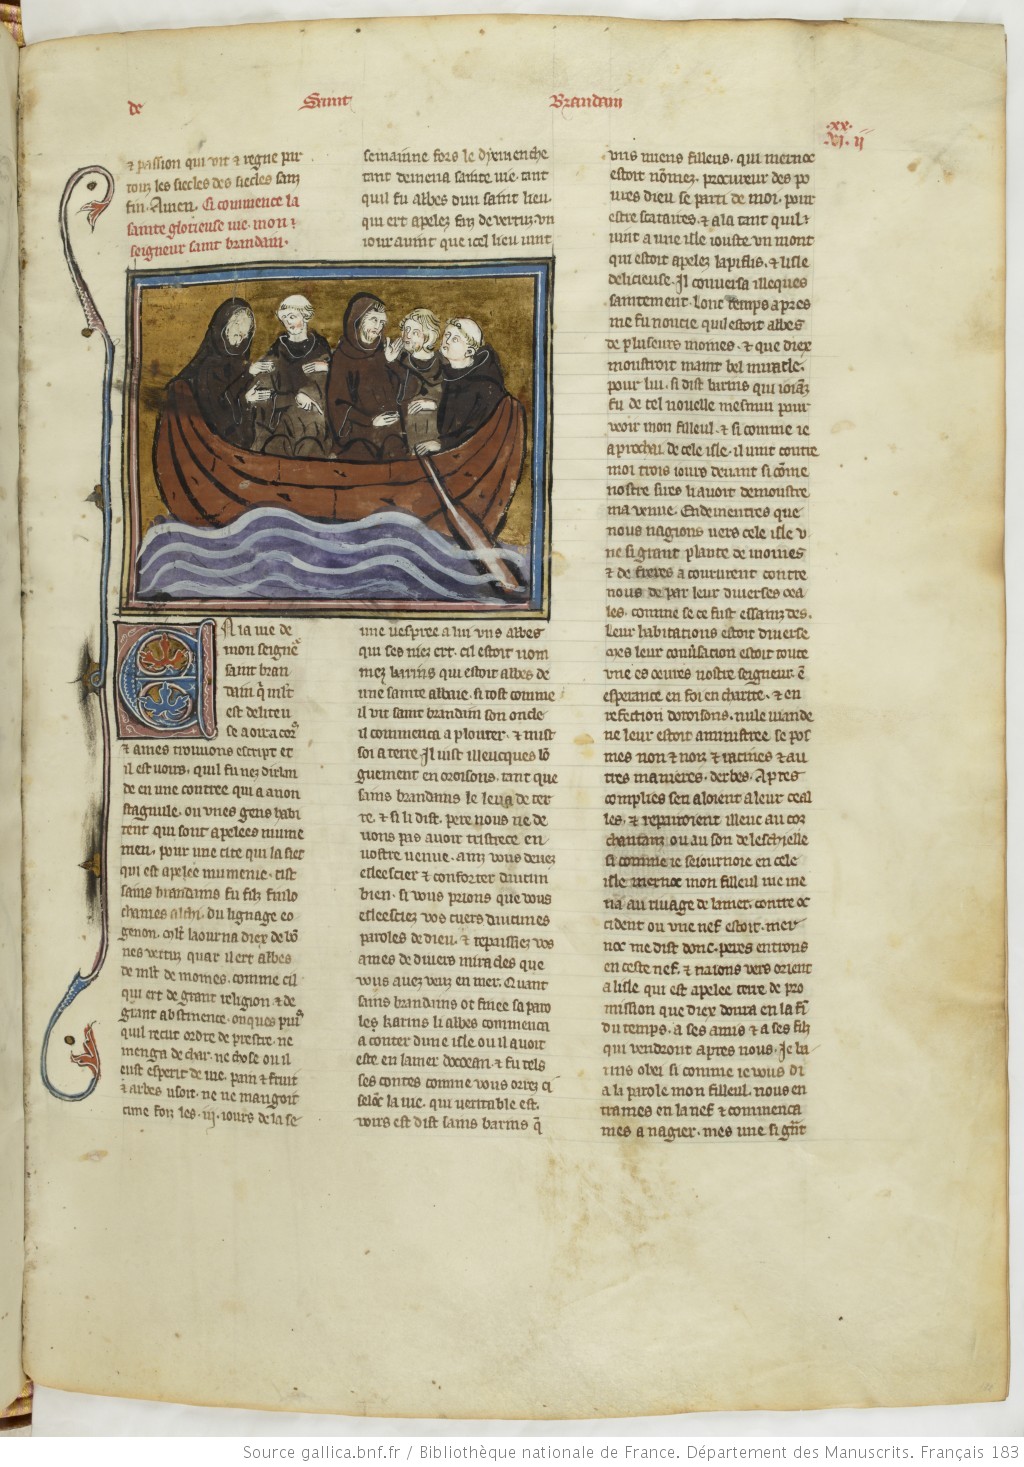 de Saint Brandain
.xx.
vi. ii
⁊ passion qui vit ⁊ regne par
touz les siecles des siecles sanz
fin. Amen. Ci commence la
sainte glorieuse vie. mon
seigneur saint brandain.
En la vie de
mon seigne
saint bran
dain
est deliteu
se a oir a cor
⁊ ames trouuons escript et
il est voirs. quil fu nez dirlan
de en une contree qui a a non
stagnile. ou vnes gens habi
tent qui sont apelees mume
men. pour une cite qui la siet
qui est apelee mumenie. cist
sains brandains fu filz finlo
chanies du lignage eo
genon. cist laourna diex de bo
nes vertuz quar il ert abbes
de mlt de moines. comme cil
qui ert de grant religion ⁊ de
grant abstinence. onques puis
quil recut ordre de prestre. ne
menga de char. ne chose ou il
eust esperit de vie. pain ⁊ fruit
⁊ arbes vsoit. ne ne mangoit
.iij. iours de la se
semainne fors le dyemenche
tant demena sainte vie. tant
quil fu abbes dun saint lieu.
qui ert apelez sanz de vertuz. vn
iour auint que icel lieu vint
une vespree a lui vns abbes
qui ses niez ert. cil estoit nom
mez barins qui estoit abbes de
une sainte abbaie. si tost comme
il vit saint brandain son oncle
il commenca a plourer. ⁊ mist
soi a terre Jl iust illeucques lo
guement en oroisons. tant que
sains brandains le leua de ter
re. ⁊ si li dist. pere nous ne de
uons pas auoir tristrece en
vostre venue. ainz vous deuez
esleescier ⁊ conforter diuum
bien. si vous prions que vous
esleesciez vos cuers diuiunes
paroles de dieu. ⁊ repaissiez vos
ames de diuers miracles que
vous auez veuz en mer. Quant
sains brandains ot finee sa paro
les barins li abbes commenca
a conter dune isle ou il auoit
este. en la mer docceam. ⁊ fu tels
ses contes comme vous orrez ci
selonc la vie. qui veritable est.
voirs est dist sains barins q
vns miens filleus. qui mernoc
estoit nommez. procureur des po
ures dieu se parti de moi. pour
estre solitaires. ⁊ ala tant quil
vint a une isle iouste vn mont
qui estoit apelez lapifilis. ⁊ lisle
delicieuse. Jl conuersa illeques
saintement. lonc temps apres
me fu noncie quil estoit abbes
de pluseurs moines. ⁊ que diex
moustroit maint bel miracle.
pour lui. si dist barins qui ioianz
fu de tel nouelle me mui pour
veoir mon filleul. ⁊ si comme ie
aprochai de cele isle. il vint contre
moi trois iours deuant si come
nostre sires li auoit demoustre
ma venue. Endementres que
nous nagions vers cele isle v
ne si grant plante de moines
⁊ de freres acoururent contre
nous de par leur diuerses cea
les. comme se ce fust essainz des.
leur habitations estoit diuerse
mes leur conuersation estoit toute
vne es oeures nostre seigneur. en
esperance en foi en charite. ⁊ en
refection doroisons. nule viande
ne leur estoit aministree se pos
mes non ⁊ noiz ⁊ racines ⁊ au
tres manieres. derbes. Apres
complies sen aloient a leur ceal
les. ⁊ reparoient illeuc au coc
chantant ou au son de leschielle
si comme ie seiournoie en cele
isle mernoc mon filleul me me
na au riuage de la mer. contre oc
cident ou vne nef estoit. mer
noc me dist donc. peres entrons
en ceste nef. ⁊ naions vers orient
a lisle qui est apelee terre de pro
mission que diex donra en la fin
du temps. a ses amis ⁊ a ses filz
qui vendront apres nous. Je la
uins obei si comme ie vous di
a la parole mon filleul. nous en
trames en la nef ⁊ commenca
mes a nagier. mes une si grant
Source gallica.bnf.fr / Bibliothèque nationale de France. Département des Manuscrits. Français 183